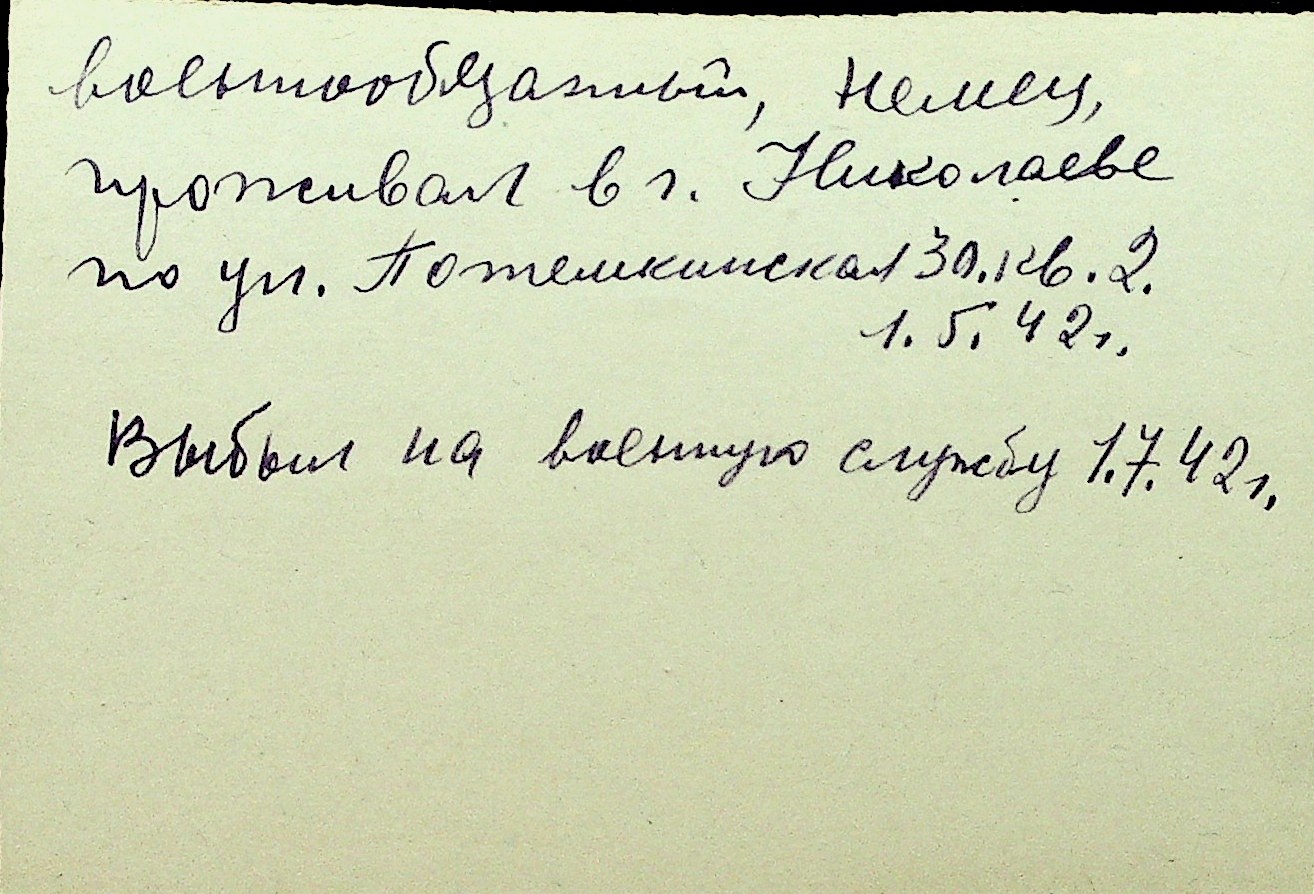 военнообязанный, немец,
проживал в г. Николаеве
по ул. Потемкинская 30.кв.2.
1.5.42г.
Выбыл на военную службу 1.7.42г.